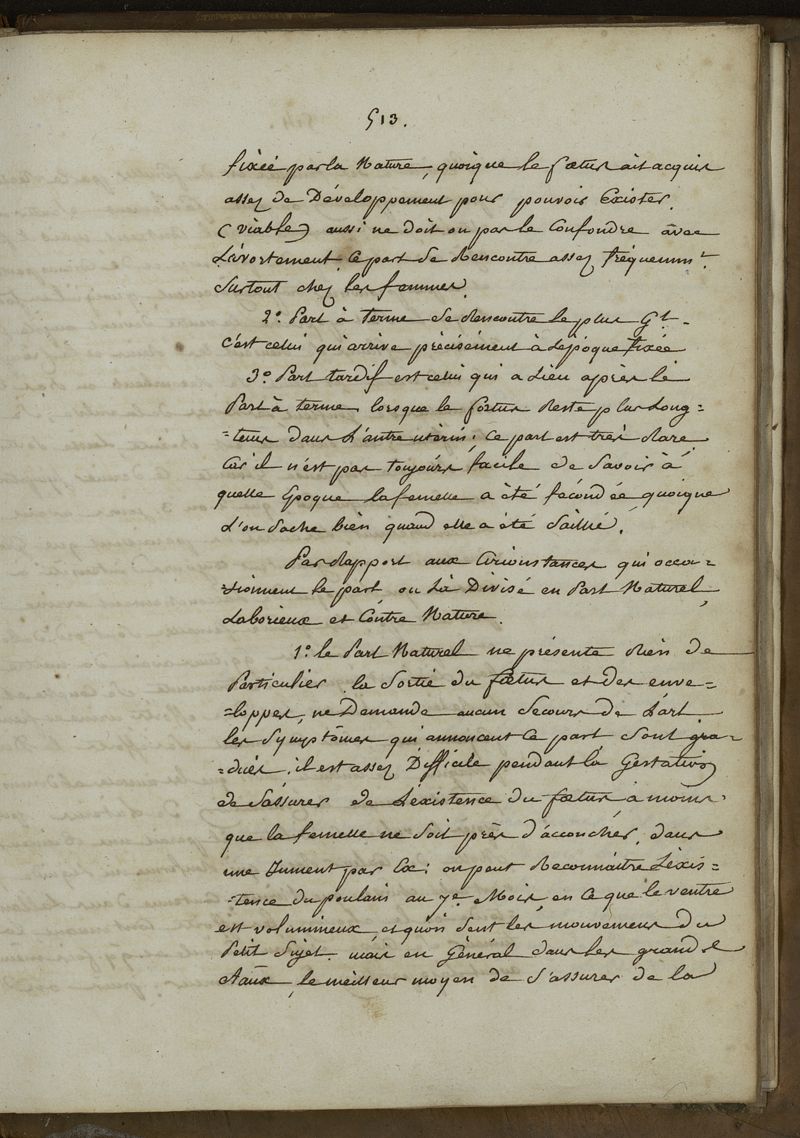 513.
fixée par la Nature, quoique le fœtus ait acquis
assez de Développement pour pouvoir Exister.
(viable) aussi ne doit on pas le Confondre avec
L'avortement. Ce part se Rencontre assez fréquemmt.
Surtout chez les femmes.
2.° Part à terme se Rencontre le plus Gt.
C'est celui qui arrive précisément à L'époque fixée
3.° Part tardif est celui qui a Lieu après le
Part à terme, lorsque le fœtus Reste plus Long=
=tems dans L'antre utérin; Ce part est très Rare
Car il n'est pas toujours facile de Savoir à
quelle Epoque la femelle a été fécondée quoique
L'on Sache bien quand elle a été Saillié.
Par Rapport aux Circonstances qui occa-
-sionnent le part on L'a Divisé en Part Naturel,
Laborieux et Contre Nature.
1.° le Part Naturel ne présente Rien de
Particulier la Sortie du fœtus et des enve=
=loppes, ne Demande aucun Secours de L'art.
les Symptômes qui annoncent Ce part Sont gra=
=dués, il est assez Difficile pendant la Gestation
de S'assurer de L'existence du fœtus à moins
que la femelle ne Soit près d'accoucher, dans
une Jument par Ex: on peut Reconnaître L'exis=
=tence du poulain au 7.e Mois, en Ce que le ventre
est volumineux, et qu'on Sent les mouvemens du
Petit Sujet. mais en Général dans les grands
Aaux, le meilleur moyen de S'assurer de la